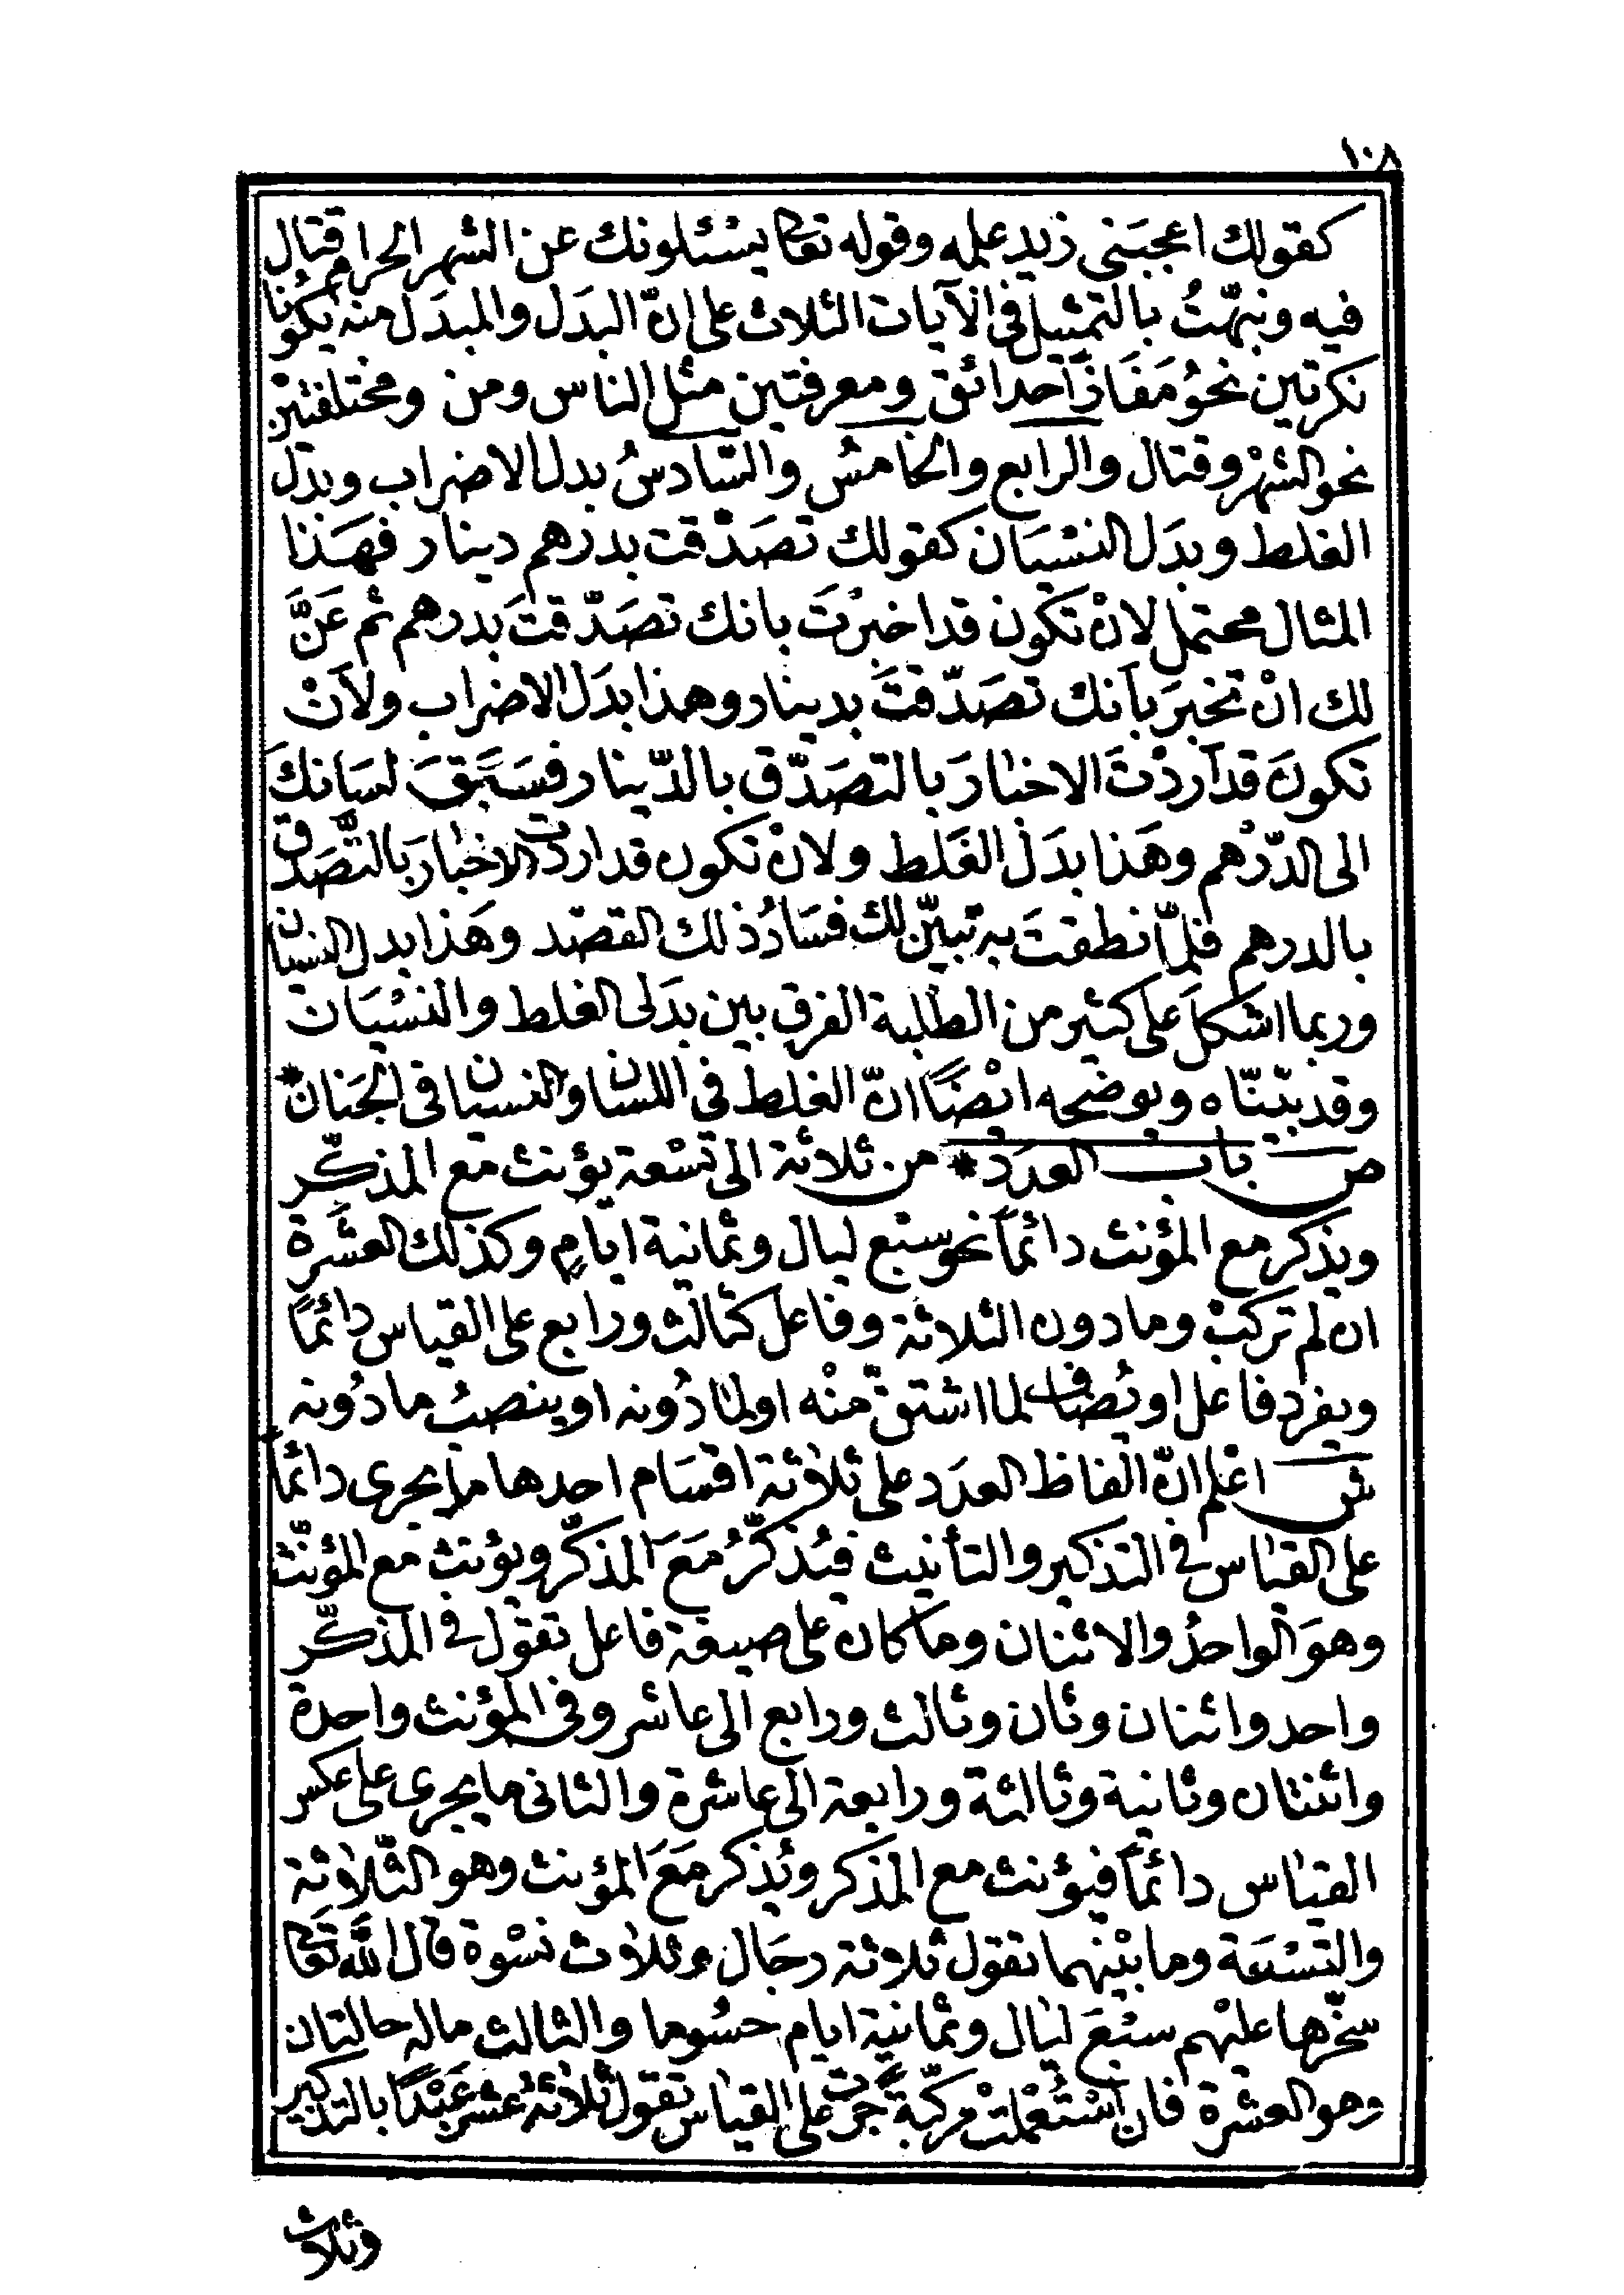 ١٠٨
كقولك اعجبَنى زيد علمه وقوله تعا يسْئلونك عن الشهر الحرام قتال
فيه ونبّهتُ بالتمثيل فى الآيات الثلاث على انّ البدَل والمبدَل منه يكونا
نكرتين نحوُ مَفَازًا حدائق ومعرفتين مثل الناس ومن ومختلفتين
نحو الشهْر وقتال والرابع والخامسُ والسّادسُ بدل الاضراب وبدل
الغلط وبدَل النسْيَان كقولك تصَدّقت بدرهم دينار فهَذا
المثال محتمل لانْ تكون قد اخبرْتَ بانك تصَدّقتَ بدرهم ثم عَنَّ
لك انْ تخبرَ بأنك تصَدّقتَ بدينار وهذا بدَل الاضراب ولأنْ
تكونَ قد أردْتَ الاخبارَ بالتصَدّق بالدّينار فسَبَقَ لسَانكَ
الى الدّرْهم وهَذا بدَل الغَلط ولانْ تكون قد اردت الاخبارَ بالتَّصَدق
بالدرهم فلمّا نطقتَ به تبيّن لك فسَادُ ذلك القصْد وهَذا بدل النسيان
وربما اشكلَ على كثير من الطلبة الفرق بين بدَلى الغلط والنسْيَان
وقد بيّنّاه ويوضحه ايْضًا انّ الغلط فى اللسان والنسيان فى الجَنان*
ص باب العدَد * من ثلاثة الى تسْعة يؤنث مع المذكّر
ويذكر مع المؤنث دائمًا نحو سبْع ليال وثمانية ايام وكذلك العشَرة
ان لم تركبْ وما دون الثلاثة وفاعل كثالث ورابع على القياس دائمًا
ويفرد فاعل او يُضاف لما اشتق منْه او لما دُونه او ينصبُ ما دُونه
ش اعْلم انّ الفاظ العدَد على ثلاثة اقسَام احدها ما يجرى دائمًا
على القياس فى التذكير والتأنيث فيُذكّرُ مَعَ المذكّر ويؤنث مع المؤنّث
وهوَ الواحدُ والاثنان وما كان على صيغة فاعل تقول فى المذكّر
واحد واثنان وثان وثالث ورابع الى عاشر وفى المؤنث واحدة
واثنتان وثانية وثالثة ورابعة الى عاشرة والثانى ما يجرى على عكس
القياس دائمًا فيؤنث مع المذكر ويُذكر مَعَ المؤنث وهو الثّلاثة
والتسْعَة وما بيْنهما تقول ثلاثة رجَال وثلاث نسْوة قال الله تعا
سخّرها عليْهم سبْعَ ليَال وثمانيَة ايام حسُوما والثالث ماله حالتان
وهو العشرة فان اسْتُعْملتْ مركّبةً جرت على القياس تقول ثلاثةُ عشرَ عَبْدًا بالتذكير
وثلاث